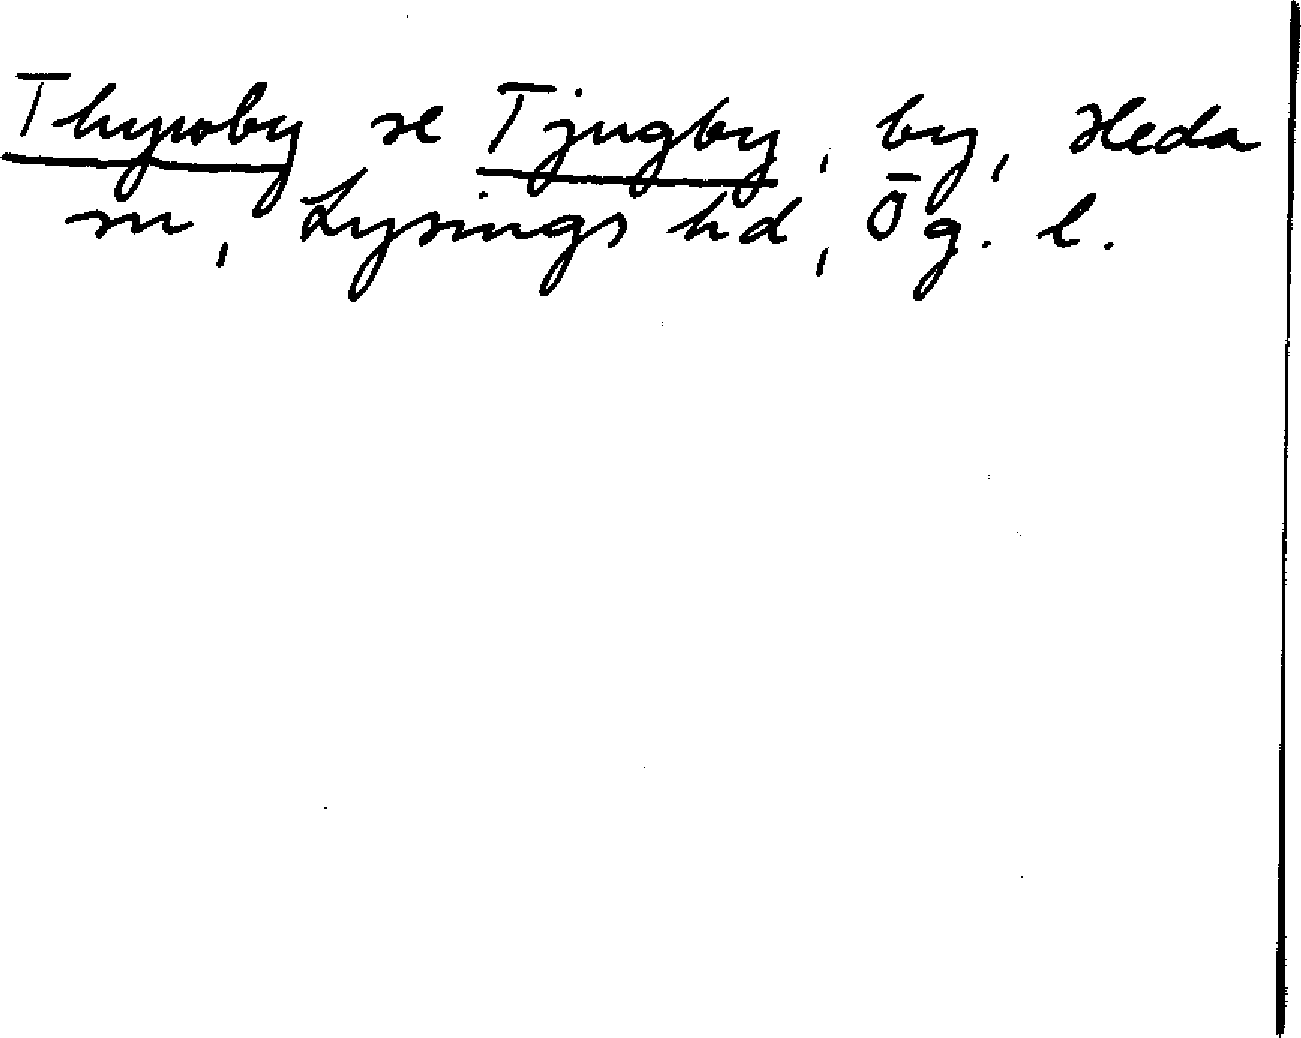 Thywby se Tjugby, by, Heda
sn, Lysings hd, Ög. l.